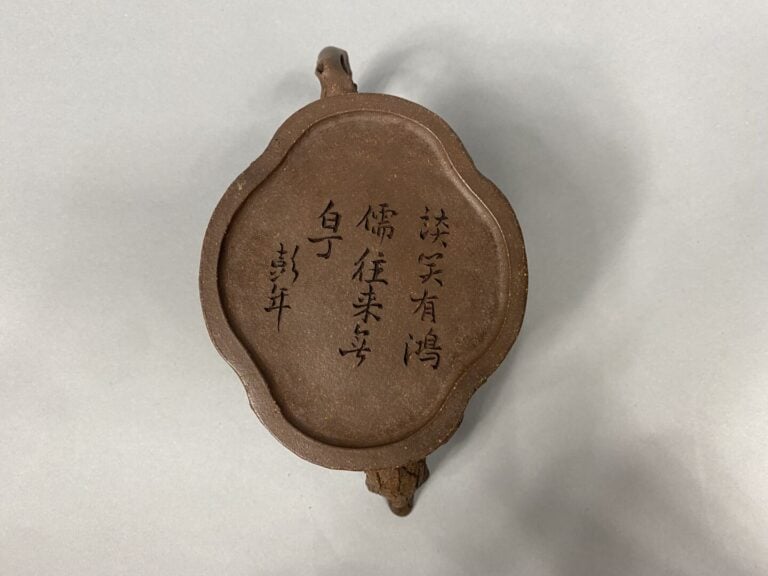 談笑有鴻
儒往来無
白丁
彭年